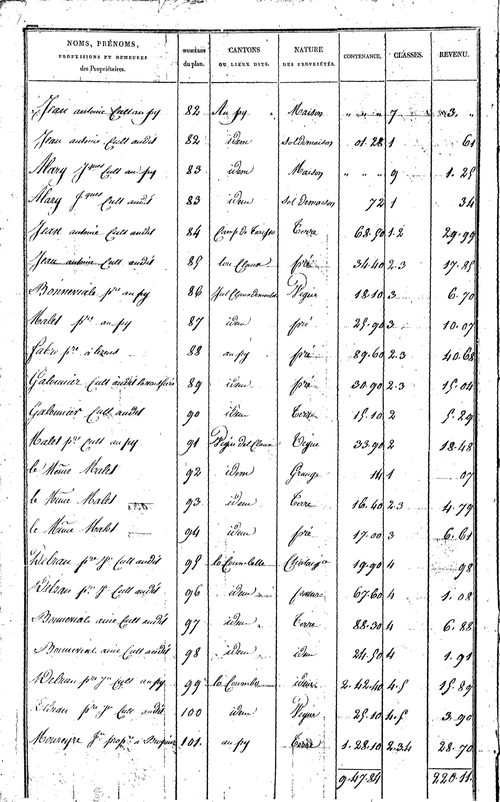 NOMS, PRÉNOMS, PROFESSIONS ET DEMEURES des Propriétaires. NUMÉROS du plan. CANTONS OU LIEUX DITS. NATURE DES PROPRIÉTÉS. CONTENANCE. CLASSES. REVENU.
Jean antoine Cult au py 82 Au py Maison " " " 7 3. "
Jean antoine Cult audit 82 idem Sol de maison 01. 28 1 61
Mary Jques Cult au py 83 idem Maison " " " 9 1. 25
Mary Jques Cult audit 83 idem Sol de maison 72 1 34
Jean antoine Cult audit 84 Camp de Terre 68. 50 1. 2 29. 99
Jean antoine Cult audit 85 lou Claux pré 34. 40 2. 3 17. 85
Bonneviale pre au py 86 Vigne 18. 10 3 6. 70
Malet pre au py 87 idem pré 25. 90 3 10. 07
Fabre pre à 88 au py pré 89. 60 2. 3 40. 68
Galonnier Cult audit 89 idem pré 30. 90 2. 3 15. 04
Galonnier Cult audit 90 idem Terre 15. 10 2 5. 29
Malet pre Cult au py 91 Vigne del Claux Vigne 33. 90 2 18. 48
le Même Malet 92 idem Grange 14 1 07
le Même Malet 93 idem Terre 16. 40 2. 3 4. 79
le Même Malet 94 idem pré 17. 00 3 6. 61
Delrau pre Jn Cult audit 95 la Coumbelle 19. 90 4 98
Delrau pre Jn Cult audit 96 idem pature 67. 60 4 1. 08
Bonneviale ainé Cult audit 97 idem Terre 88. 30 4 6. 88
Bonneviale ainé Cult audit 98 idem idem 24. 50 4 1. 91
Delrau pre Jn Cult au py 99 la Coumbe idem 2. 42. 40 4. 5 15. 89
Delrau pre Jn Cult audit 100 idem Vigne 25. 10 4. 5 3. 90
Moureyre Jn propre à 101. au py Terre 1. 28. 10 2. 3 4 28. 70
9. 47. 84 220. 11